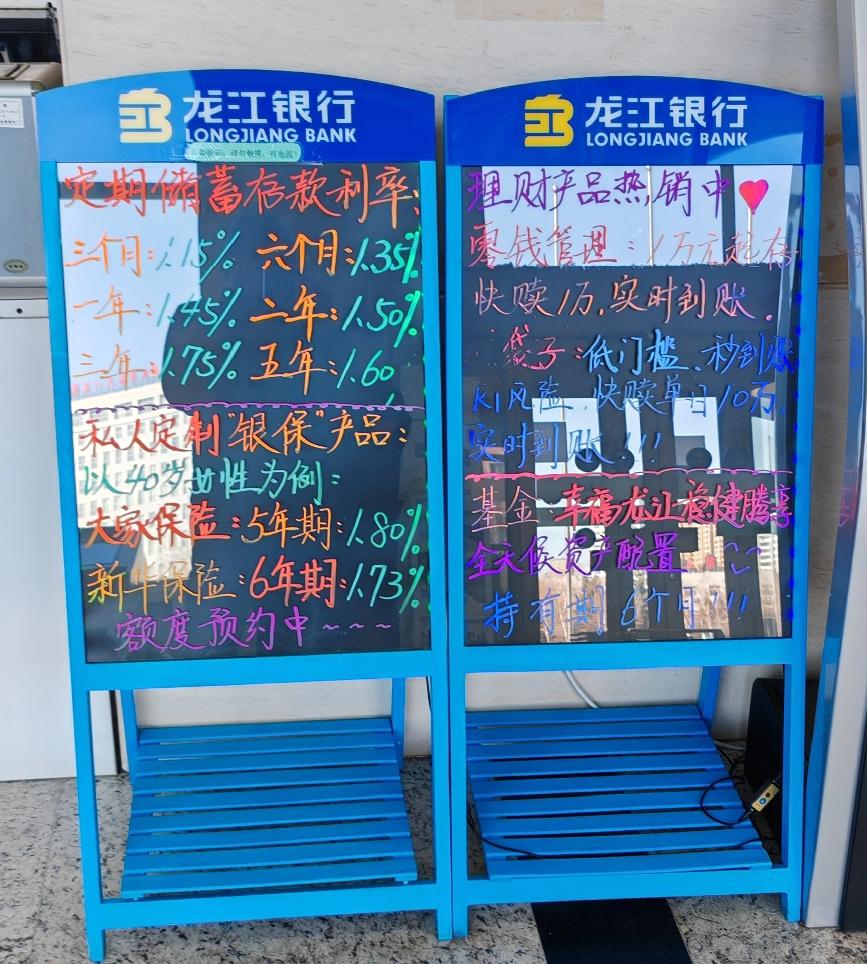 龙江银行
LONGJIANG BANK
定期储蓄存款利率:
三个月:1.15% 六个月:1.35%
一年:1.45% 二年:1.50%
三年:1.75% 五年:1.60
私人定制"银保"产品:
以40岁女性为例:
大家保险:5年期:1.80%
新华保险:6年期:1.73%
额度预约中~~~
龙江银行
LONGJIANG BANK
理财产品热销中
零钱管理:1万元起存
快赎1万.实时到账.
袋子:低门槛、秒到账
R1风险 快赎单日10万,
实时到账!!!
基金:幸福龙江稳健腾享
全天候资产配置
持有期6个月!!!